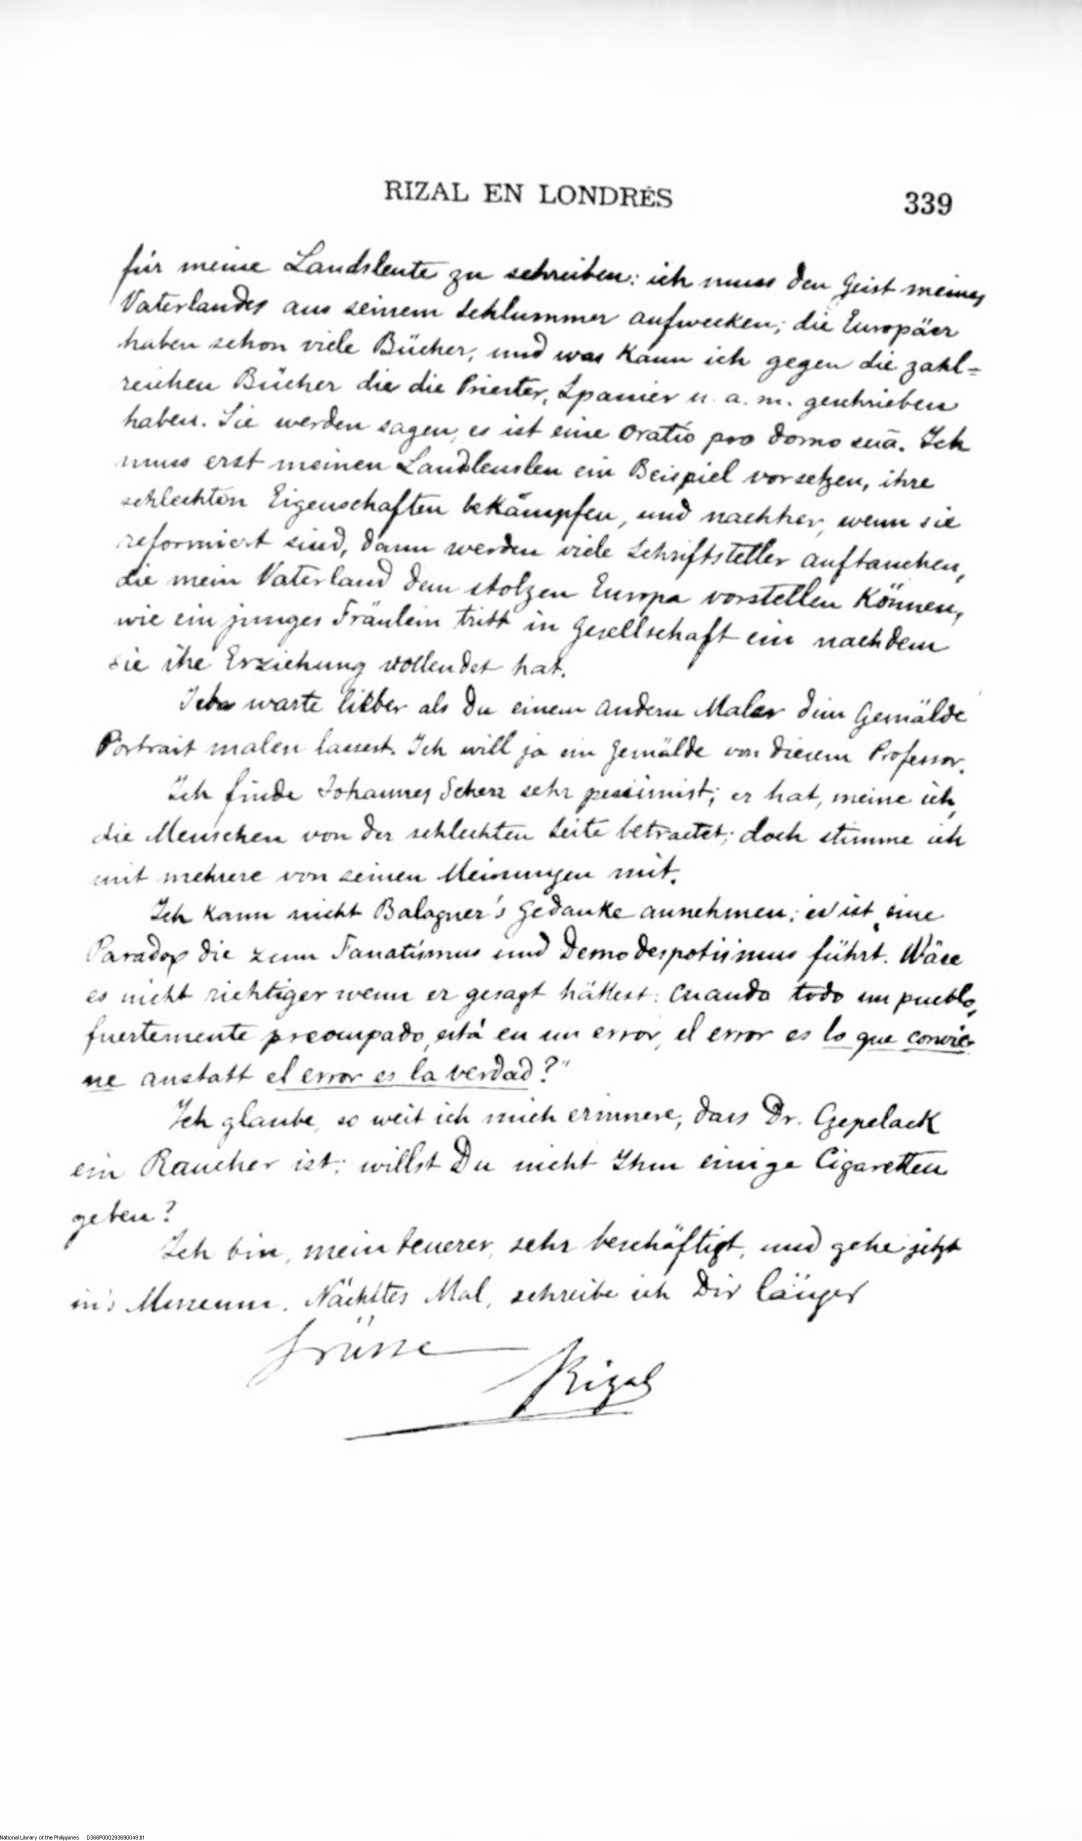 RIZAL EN LONDRES 339
für meine Landsleute zu schreiben: ich muss den Geist meines
Vaterlandes aus seinem Schlummer aufwecken; die Europäer
haben schon viele Bücher, und was kann ich gegen die zahl=
reichen Bücher die die Priester, Spanier u. a. m. geschrieben
haben. Sie werden sagen, es ist eine Oratio pro domo suā. Ich
muss erst meinen Landsleuten ein Beispiel vorsetzen, ihre
schlechten Eigenschaften bekämpfen, und nachher, wenn sie
reformiert sind, dann werden viele Schriftsteller auftauchen,
die mein Vaterland dem stolzen Europa vorstellen können,
wie ein junges Fräulein tritt in Gesellschaft ein nachdem
sie ihre Erziehung vollendet hat.
Ich warte lieber als Du einem andern Maler dein Gemälde
Portrait malen lassest. Ich will ja ein Gemälde von diesem Professor.
Ich finde Johannes Scherr sehr pessimist; er hat, meine ich,
die Menschen von der schlechten Seite betractet; doch stimme ich
mit mehrere von seinen Meinungen mit.
Ich kann nicht Balaguer's Gedanke annehmen; es ist eine
Paradox die zum Fanatismus und Demodespotismus führt. Wäre
es nicht richtiger wenn er gesagt hättest: Cuando todo un pueblo,
fuertemente preocupado, está en un error, el error es lo que convie-
ne anstatt el error es la verdad?"
Ich glaube, so weit ich mich erinnere, dass Dr. Czepelack
ein Raucher ist; willst Du nicht Ihm einige Cigaretten
geben?
Ich bin, mein teuerer, sehr beschäftigt, und gehe jetzt
in's Museum. Nächstes Mal, schreibe ich Dir länger
Grüsse
Rizal
National Library of the Philippines